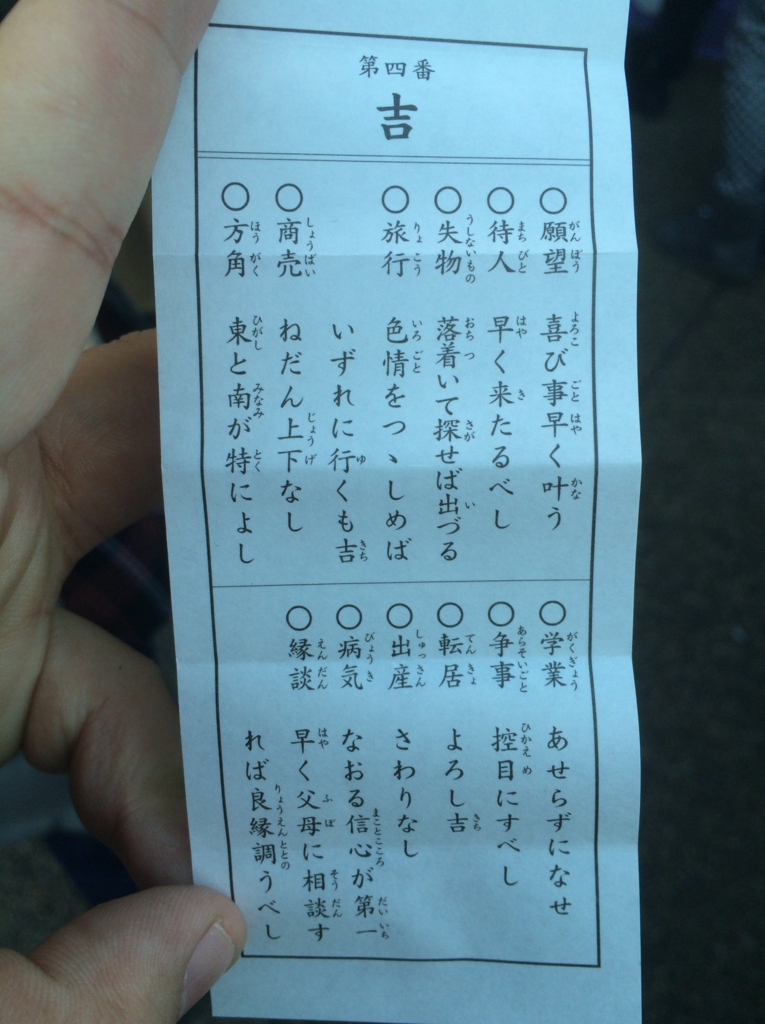 第四番
吉
○願望 喜び事早く叶う
○待人 早く来たるべし
○失物 落着いて探せば出づる
○旅行 色情をつゝしめば
いずれに行くも吉
○商売 ねだん上下なし
○方角 東と南が特によし
○学業 あせらずになせ
○争事 控目にすべし
○転居 よろし吉
○出産 さわりなし
○病気 なおる信心が第一
○縁談 早く父母に相談す
れば良縁調うべし